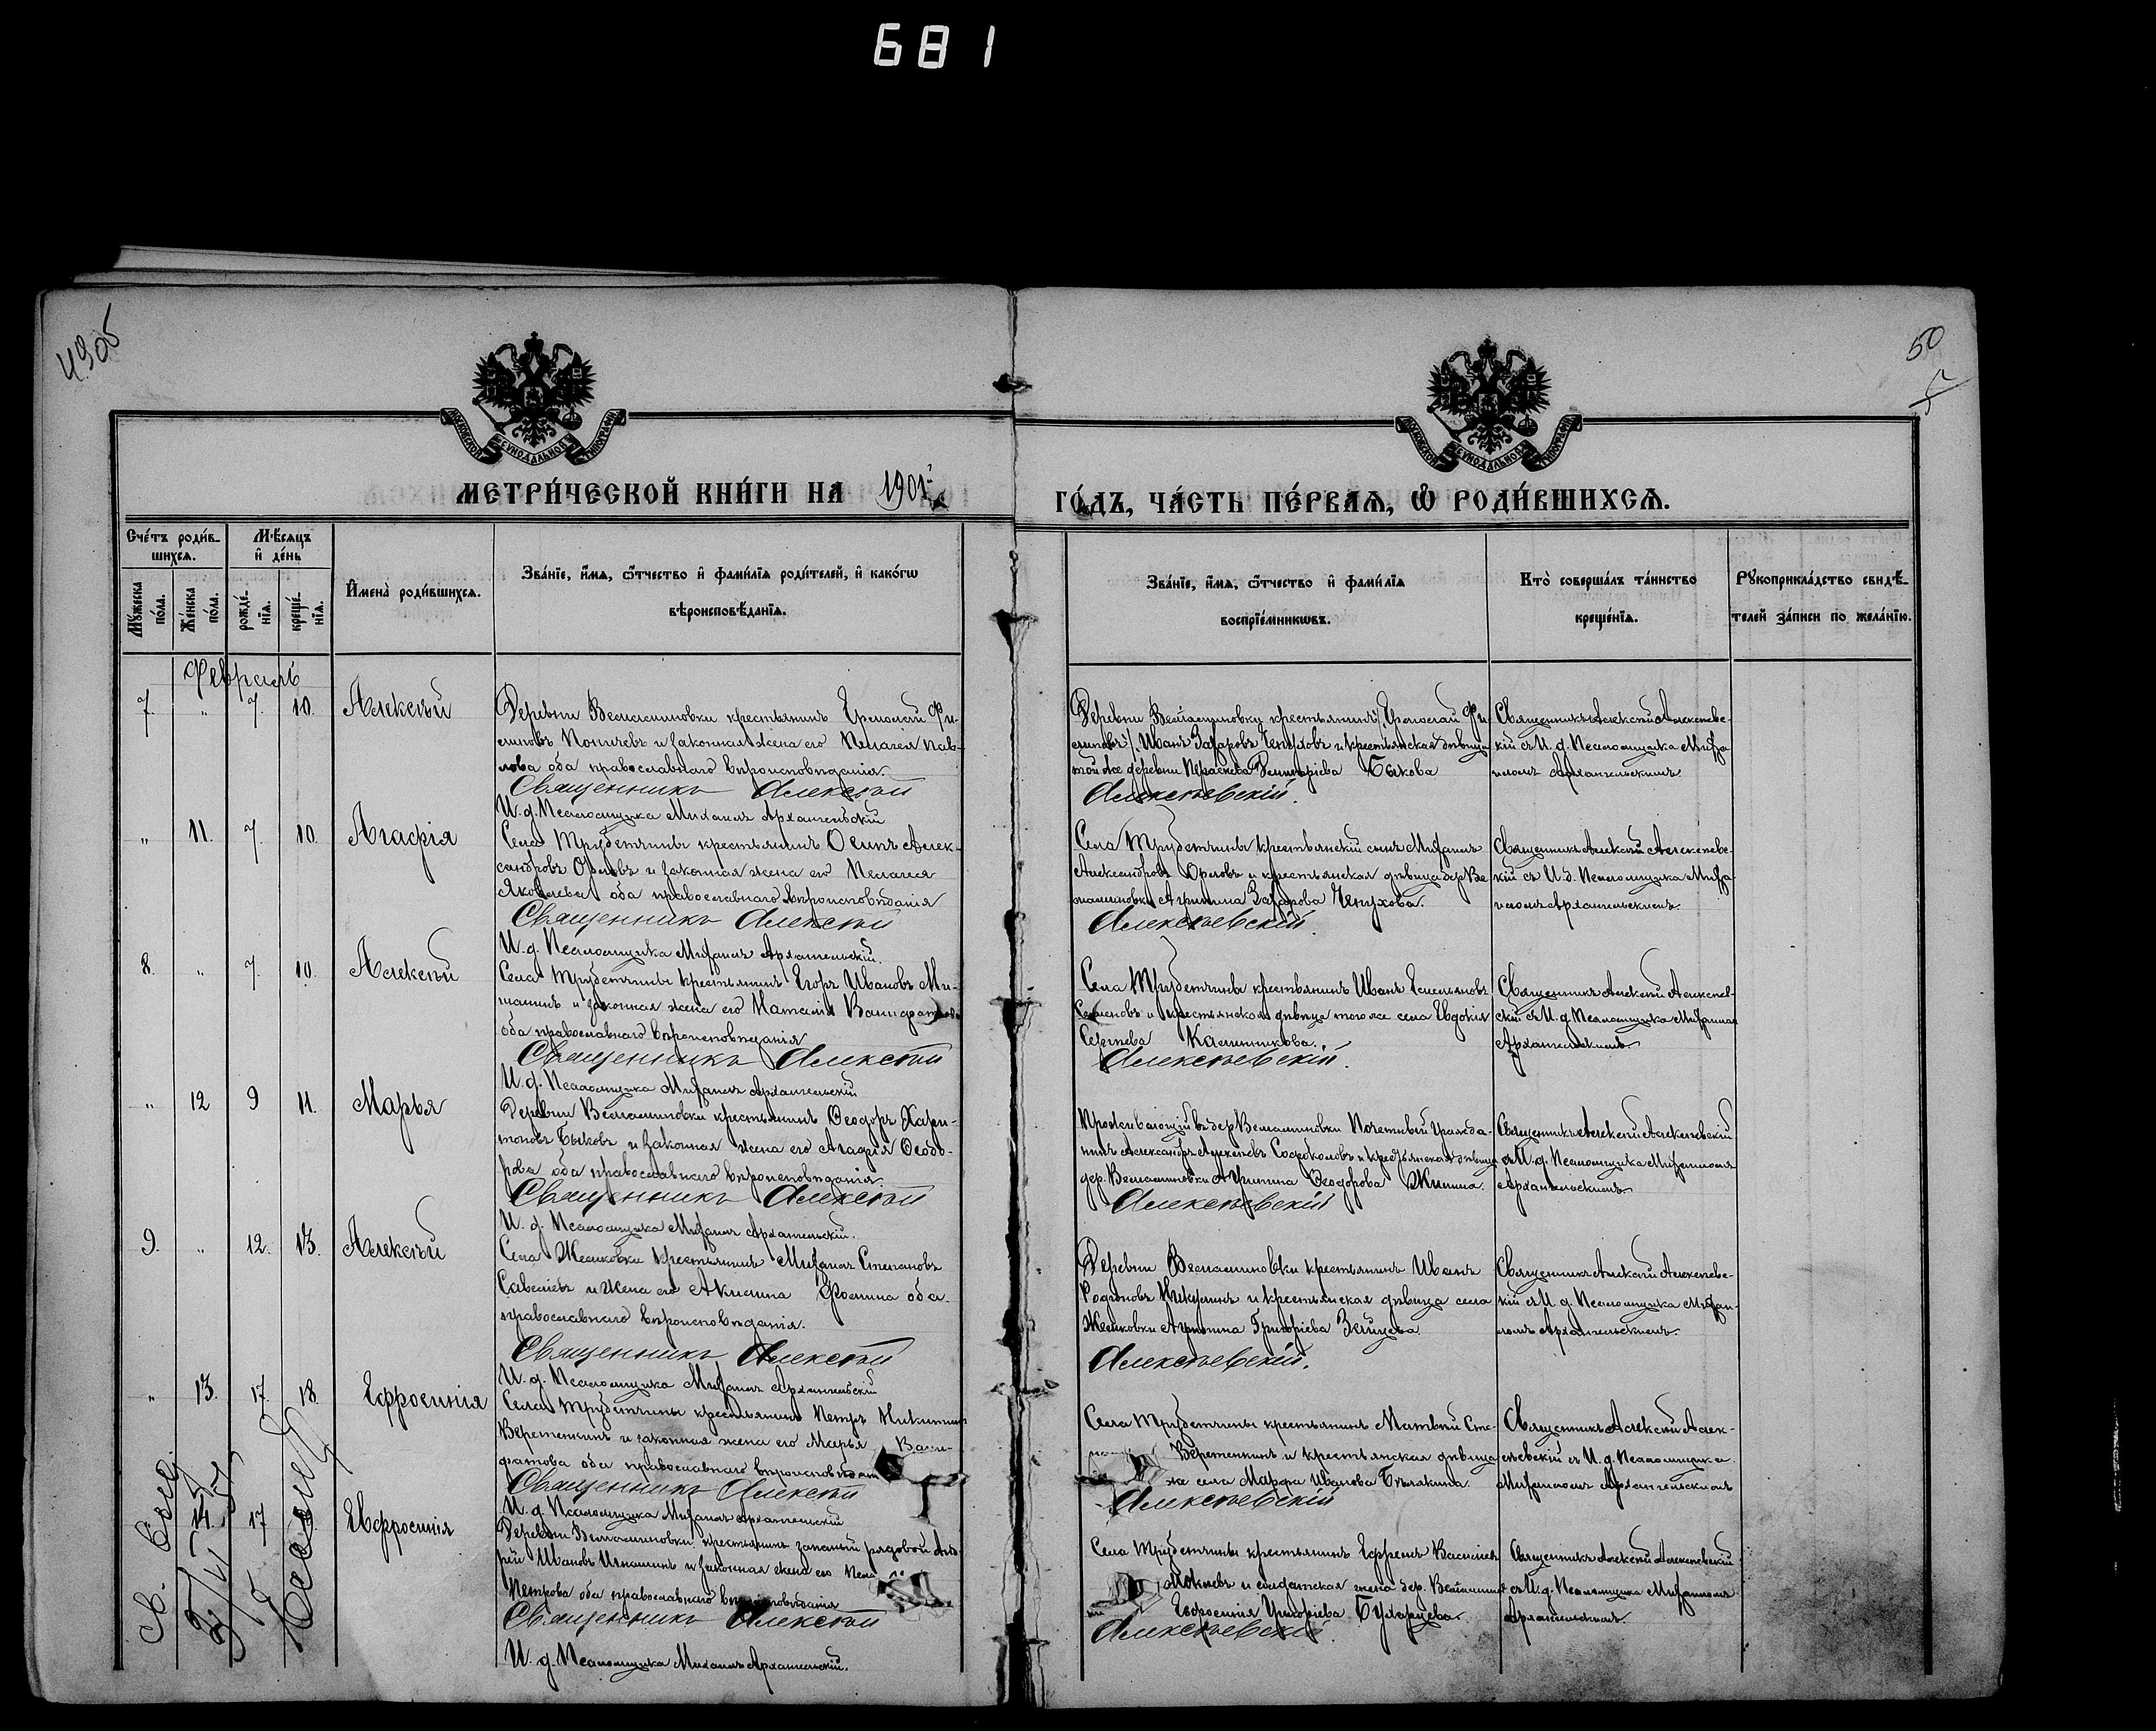 681
50
МОСКОВСКОЙ СѴНОДАЛЬНОЙ ТИПОГРАФІИ
МОСКОВСКОЙ СѴНОДАЛЬНОЙ ТИПОГРАФІИ
МЕТРИ́ЧЕСКОЙ КНИ́ГИ НА 1901й
ГО́ДЪ, ЧА́СТЬ ПЕ́РВАѦ, Ѽ РОДИ́ВШИХСѦ.
Сче́тъ роди́в-
шихсѧ.
Мѣ́сѧцъ
и҆ де́нь
Мꙋ́жеска по́ла.
Же́нска по́ла.
рожде́-
нїѧ.
креще́-
нїѧ.
И҆мена̀ роди́вшихсѧ.
Зва́нїе, и҆́мѧ, ѻ҆́тчество и҆ фами́лїѧ роди́телей, и҆ како́гѡ
вѣроисповѣ́данїѧ.
Зва́нїе, и҆́мѧ, ѻ҆́тчество и҆ фами́лїѧ
воспрїе́мникѡвъ.
Кто̀ соверша́лъ та́инство
креще́нїѧ.
Рꙋкоприкла́дство свидѣ́-
телей за́писи по жела́нїю.
Февраль
7. " 7. 10. Алексѣй
Деревни Вельяминовки крестьянинъ Ермолай Фи-
липовъ и законная жена его Пелагея Пав-
лова оба православнаго вѣроисповѣданія.
Священникъ Алексѣй
И. д. Псаломщика Михаилъ Архангельскій
Иванъ Захаровъ Чепуховъ и крестьянская дѣвица
той же деревни Параскева Быкова
Алексѣевскій.
Священникъ Алексѣй Алексѣевс-
кій съ И. д. Псаломщика Миха-
иломъ Архангельскимъ
" 11. 7. 10. Агафія
Села Трубетчины крестьянинъ Осипъ Алек-
сандровъ Орловъ и законная жена его Пелагея
Яковлева оба православнаго вѣроисповѣданія
Священникъ Алексѣй
И. д. Псаломщика Михаилъ Архангельскій.
Села Трубетчины крестьянскій сынъ Михаилъ
Александровъ Орловъ и крестьянская дѣвица дер. Ве-
льяминовки Агрипина Захарова Чепухова.
Алексѣевскій.
Священникъ Алексѣй Алексѣевс-
кій съ И. д. Псаломщика Миха-
иломъ Архангельскимъ.
8. " 7. 10. Алексѣй
Села Трубетчины крестьянинъ Егоръ Ивановъ Ми-
шинъ и законная жена его Наталія
оба православнаго вѣроисповѣданія
Священникъ Алексѣй
И. д. Псаломщика Михаилъ Архангельскій
Села Трубетчины крестьянинъ Иванъ Емельяновъ
и крестьянская дѣвица того же села Евдокія
Сергѣева Калинникова.
Алексѣевскій.
Священникъ Алексѣй Алексѣев-
скій съ И. д. Псаломщика Михаиломъ
Архангельскимъ.
" 12 9 11. Марья
Деревни Вельяминовки крестьянинъ Ѳеодоръ Хари-
тоновъ Быковъ и законная жена его Агафія Ѳеодо-
рова оба православнаго вѣроисповѣданія.
Священникъ Алексѣй
И. д. Псаломщика Михаилъ Архангельскій.
Проживающій въ дер. Вельяминовки Почетный Гражда-
нинъ Александръ Алексѣевъ и крестьянская дѣвица
дер. Вельяминовки Агрипина Ѳеодорова
Алексѣевскій
Священникъ Алексѣй Алексѣевскій
съ И. д. Псаломщика Михаиломъ
Архангельскимъ.
9. " 12. 13. Алексѣй
Села крестьянинъ Михаилъ Степановъ
Савельевъ и жена его Акилина Фомина оба
православнаго вѣроисповѣданія.
Священникъ Алексѣй
И. д. Псаломщика Михаилъ Архангельскій
Деревни Вельяминовки крестьянинъ Иванъ
Родіоновъ Никулинъ и крестьянская дѣвица села
Агрипина Григоріева Зайцева
Алексѣевскій.
Священникъ Алексѣй Алексѣевс-
кій съ И. д. Псаломщика Михаи-
ломъ Архангельскимъ.
" 13. 17. 18. Ефросинія
Села Трубетчины крестьянинъ Петръ Никитинъ
Веретенкинъ и законная жена его Марья
оба православнаго
Священникъ Алексѣй
И. д. Псаломщика Михаилъ Архангельскій
Села Трубетчины крестьянинъ Матвѣй Сте-
Веретенкинъ и крестьянская дѣвица
же села Марфа Иванова
Алексѣевскій
Священникъ Алексѣй Алек-
сѣевскій съ И. д. Псаломщика
Михаиломъ Архангельскимъ
14. 17 Евфросинія
Деревни Вельяминовки крестьянинъ запасный рядовой Анд-
рей Ивановъ и законная жена его
Петрова оба православнаго вѣроисповѣданія
Священникъ Алексѣй
И. д. Псаломщика Михаилъ Архангельскій.
Села Трубетчины крестьянинъ Ефремъ Василіевъ
и солдатская жена дер.
Евфросинія Григоріева Бухарцева.
Алексѣевскій
Священникъ Алексѣй Алексѣевскій
съ И. д. Псаломщика Михаиломъ
Архангельскимъ.